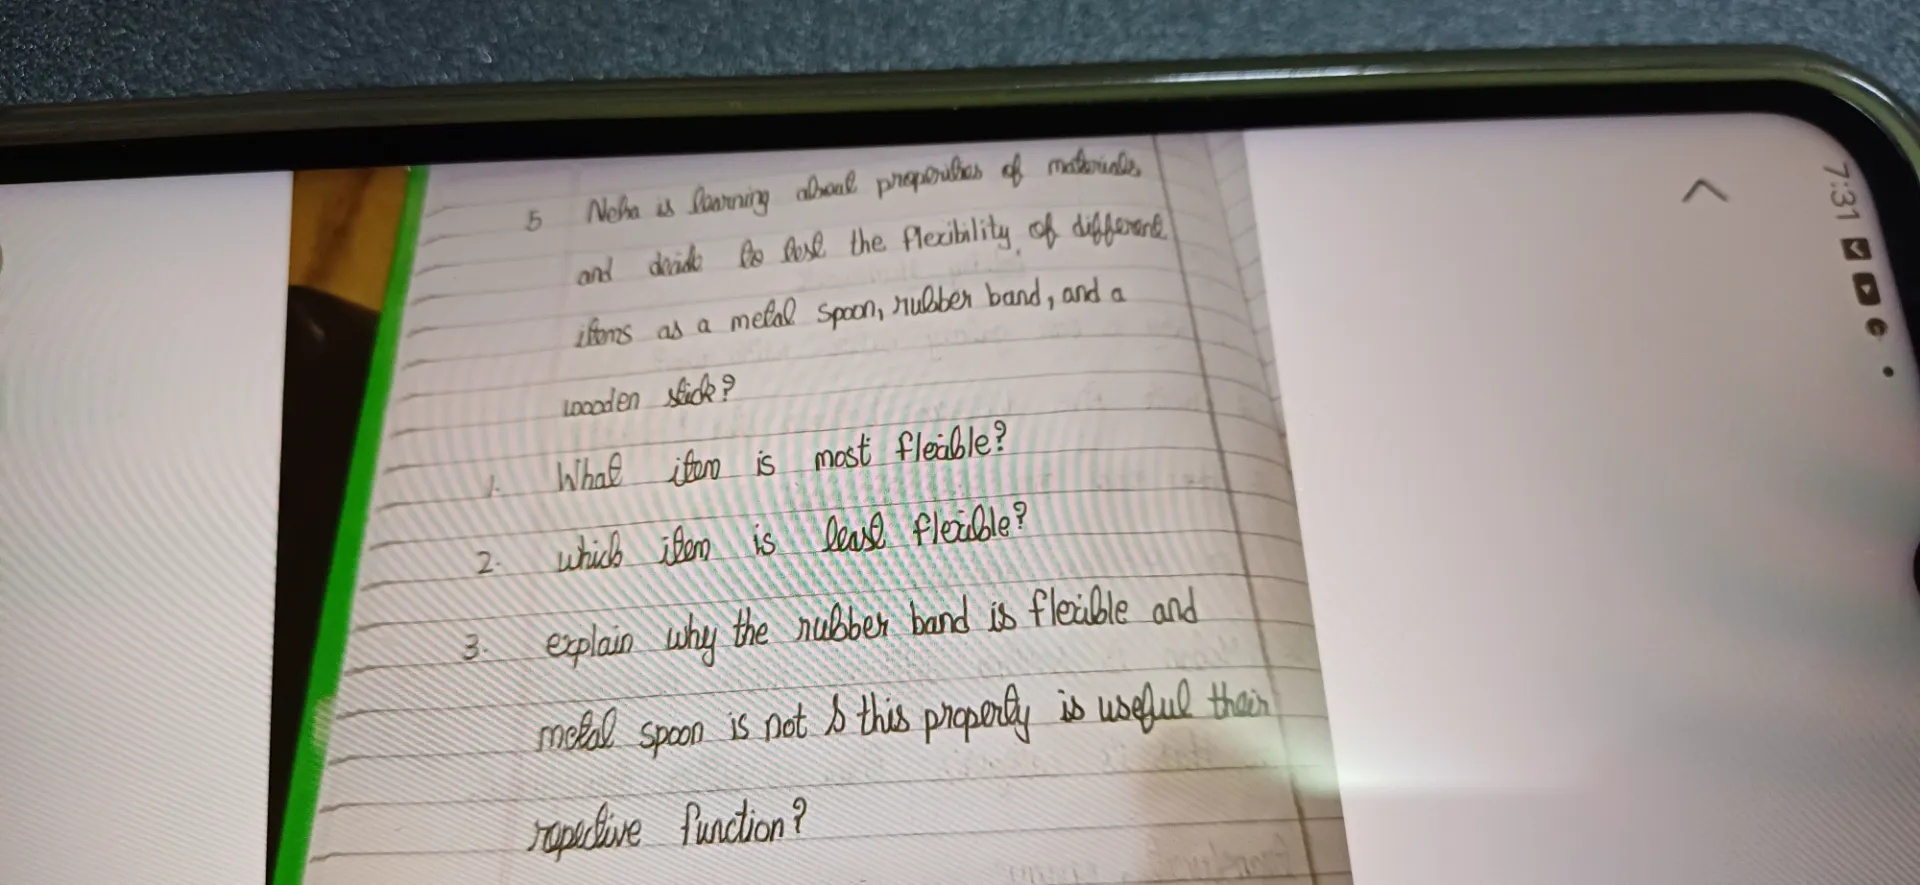 5 Neha is learning about properities of materials
and decide to test the flexibility of different
items as a metal spoon, rubber band, and a
wooden stick?
1. What item is most flexible?
2. which item is least flexible?
3. explain why the rubber band is flexible and
metal spoon is not & this property is useful their
repective function?
7:31